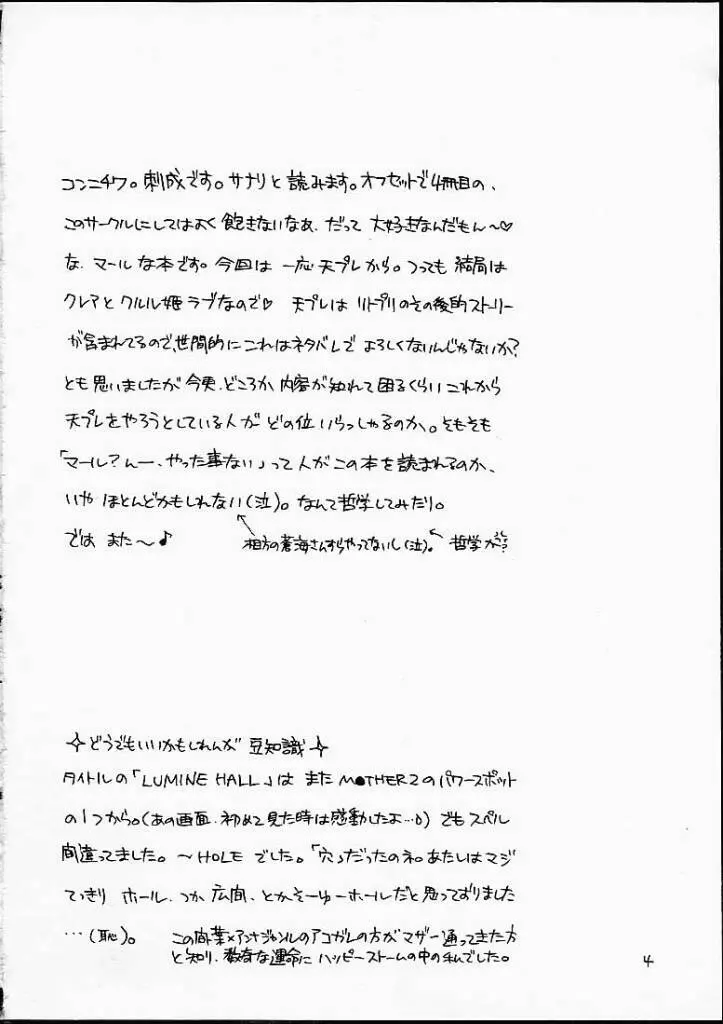 コンニチワ。刺成です。サナリと読みます。オフセットで4冊目の、
このサークルにしてはよく飽きないなあ、だって大好きなんだもん〜♡
な、マールな本です。今回は一応天プレから。つっても結局は
クレアとクルル姫ラブなので♡ 天プレはリトプリのその後的ストーリー
が含まれてるので、世間的にこれはネタバレでよろしくないんじゃないか?
とも思いましたが今更、どころか内容が知れて困るくらいこれから
天プレをやろうとしている人がどの位いらっしゃるのか。そもそも
「マール?んー、やった事ない」って人がこの本を読まれるのか、
いやほとんどかもしれない(泣)。なんて哲学してみたり。
ではまた〜♪ 相方の蒼海さんすらやってないし(泣)。 哲学か?
✧どうでもいいかもしれんが豆知識✧
タイトルの「LUMINE HALL」はまたMOTHER2のパワースポット
の1つから。(あの画面、初めて見た時は感動したよ…)でもスペル
間違ってました。〜HOLEでした。「穴」だったのネ。あたしはマジ
てっきりホール、つか広間、とかそーゆーホールだと思っておりました
…(恥)。 このアンジャンルのアコガレの方がマザー通ってきた方
と知り、数奇な運命にハッピーストームの中の私でした。
4